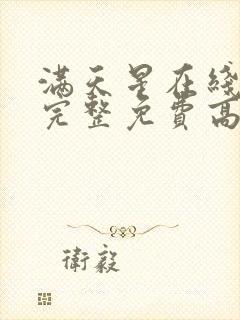 满天星在綫
完整免費高
衛毅